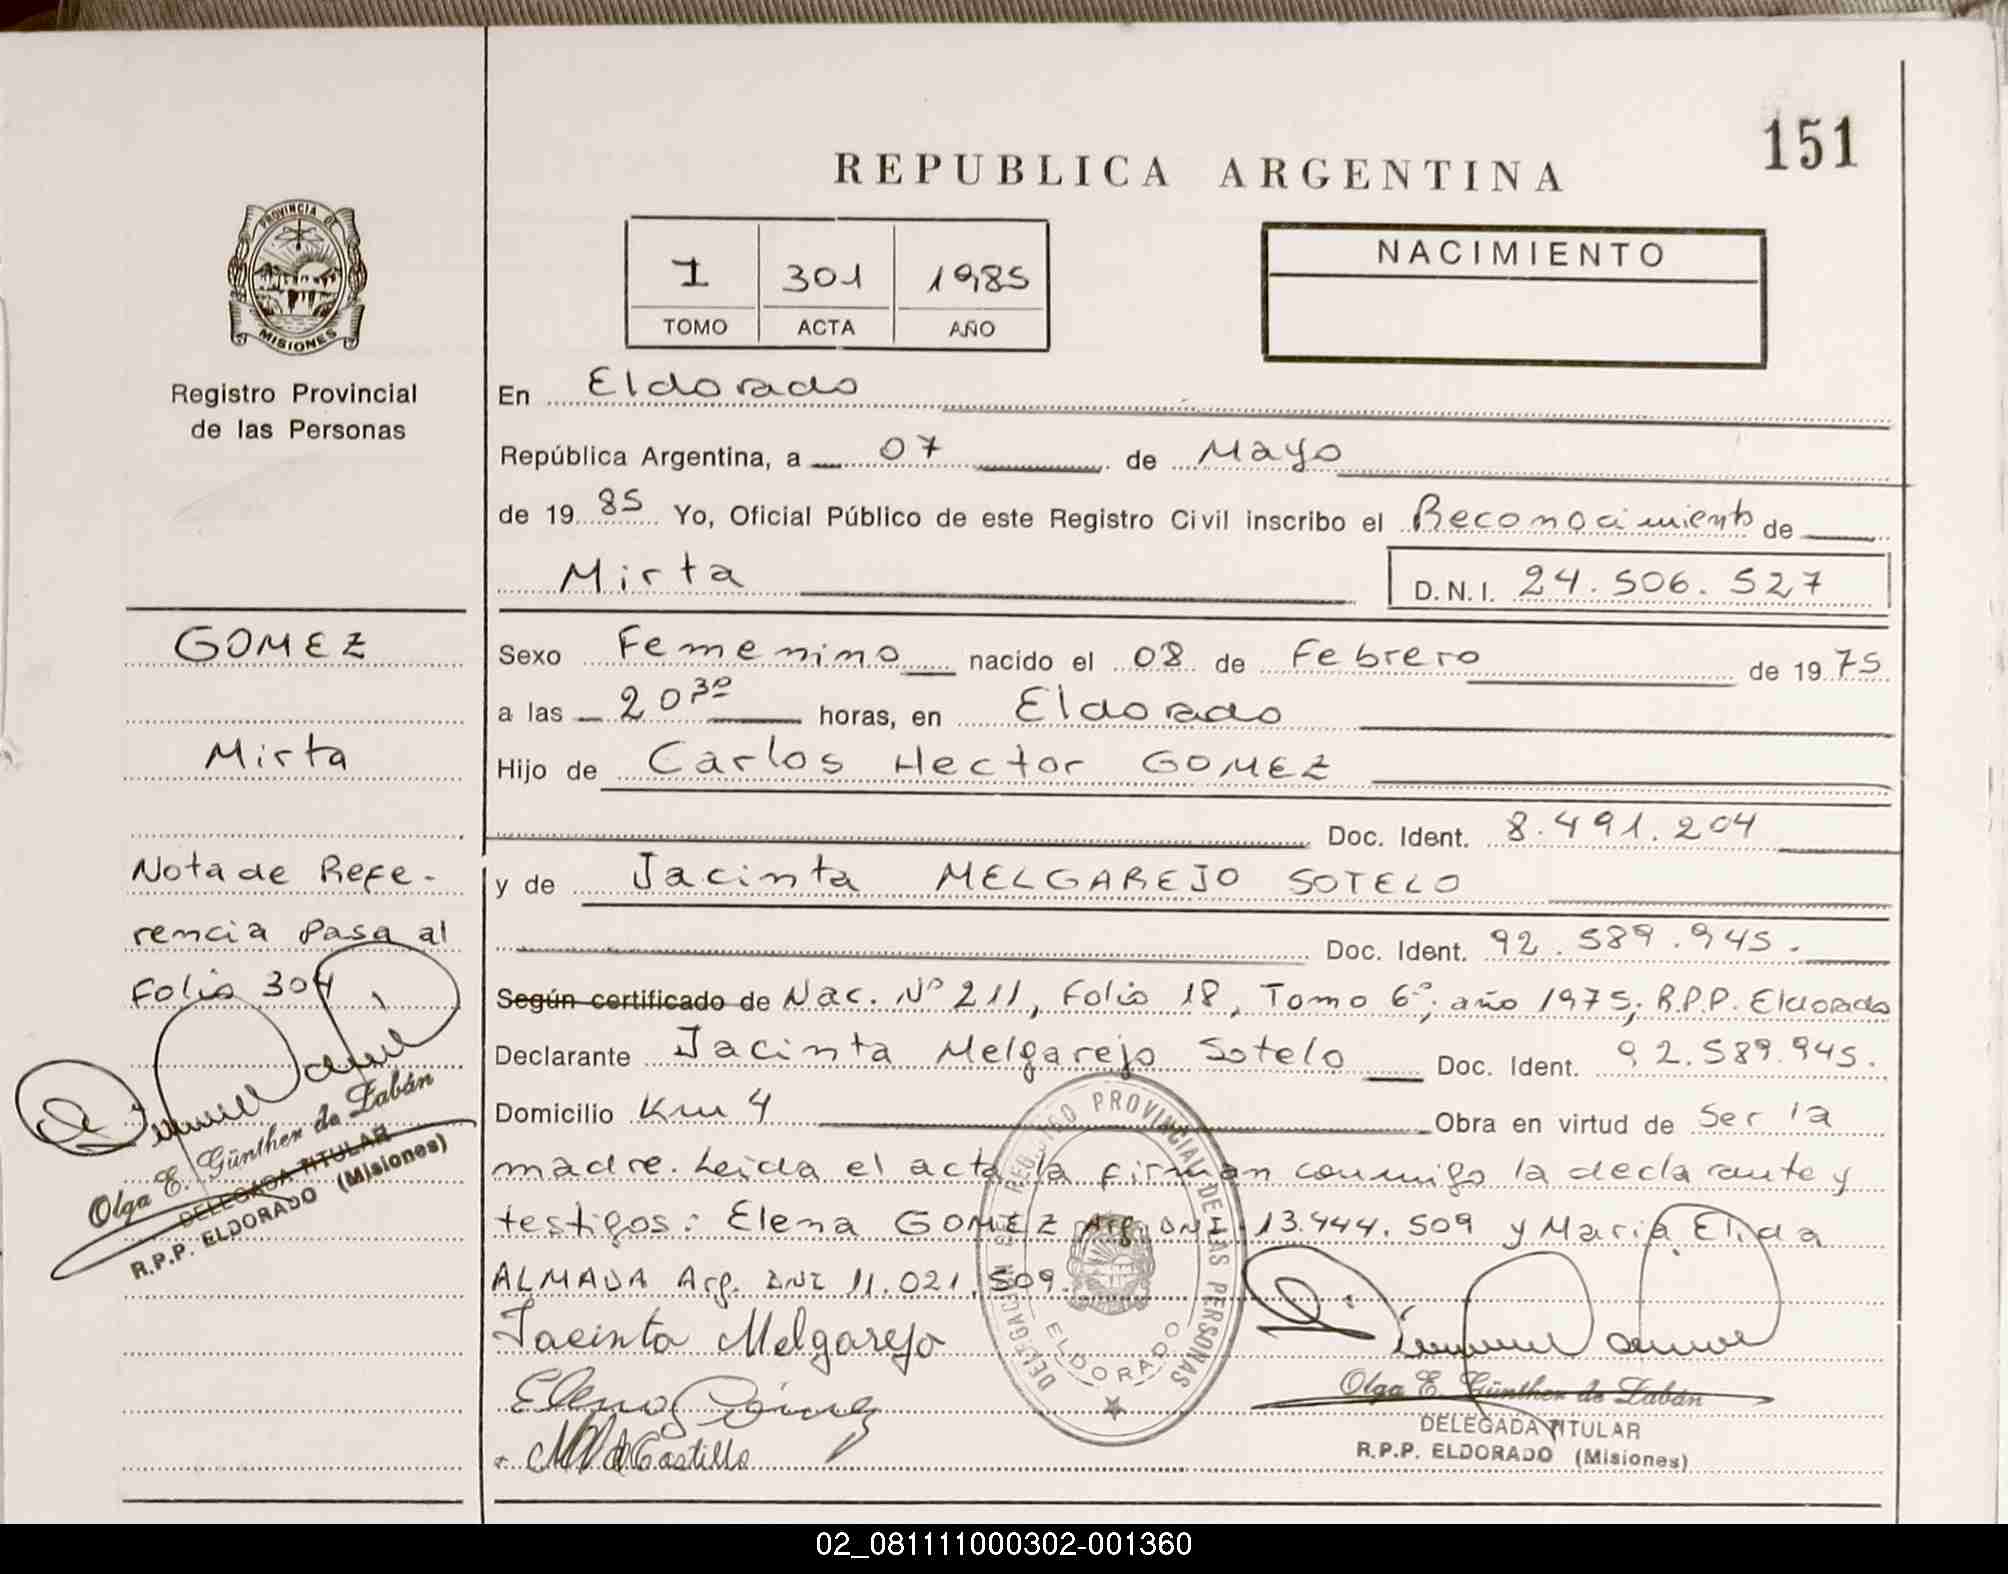 151
REPUBLICA ARGENTINA
PROVINCIA DE
MISIONES
Registro Provincial
de las Personas
I 301 1985
TOMO ACTA AÑO
NACIMIENTO
En Eldorado
República Argentina, a 07 de Mayo
de 1985 Yo, Oficial Público de este Registro Civil inscribo el Reconocimiento de
Mirta D.N.I. 24.506.527
GOMEZ
Mirta
Nota de Refe-
rencia Pasa al
Folio 304
Olga E. Günther de Zabán
DELEGADA TITULAR
R.P.P. ELDORADO (Misiones)
Sexo Femenino nacido el 08 de Febrero de 1975
a las 20 30 horas, en Eldorado
Hijo de Carlos Hector GOMEZ
Doc. Ident. 8.491.204
y de Jacinta MELGAREJO SOTELO
Doc. Ident. 92.589.945.
Según certificado de Nac. Nº 211, Folio 18, Tomo 6º, año 1975, R.P.P. Eldorado
Declarante Jacinta Melgarejo Sotelo Doc. Ident. 92.589.945.
Domicilio Km 4 Obra en virtud de Ser la
madre. Leida el acta la firman conmigo la declarante y
testigos: Elena GOMEZ Arg. DNI. 13.444.509 y Maria Elida
ALMADA Arg. DNI 11.021.509.
Jacinta Melgarejo
Elena Gómez
de Castillo
DELEGACION REGISTRO PROVINCIAL DE LAS PERSONAS
ELDORADO
Olga E. Günther de Zabán
DELEGADA TITULAR
R.P.P. ELDORADO (Misiones)
02_081111000302-001360